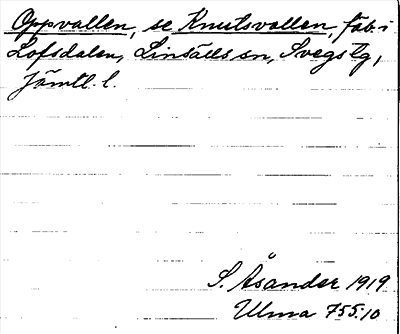 Oppvallen, se Knutsvallen, fäb. i
Lofsdalen, Linsälls sn, Svegs tg,
Jämtl. l.
S. Åsander 1919
Ulma 755:10